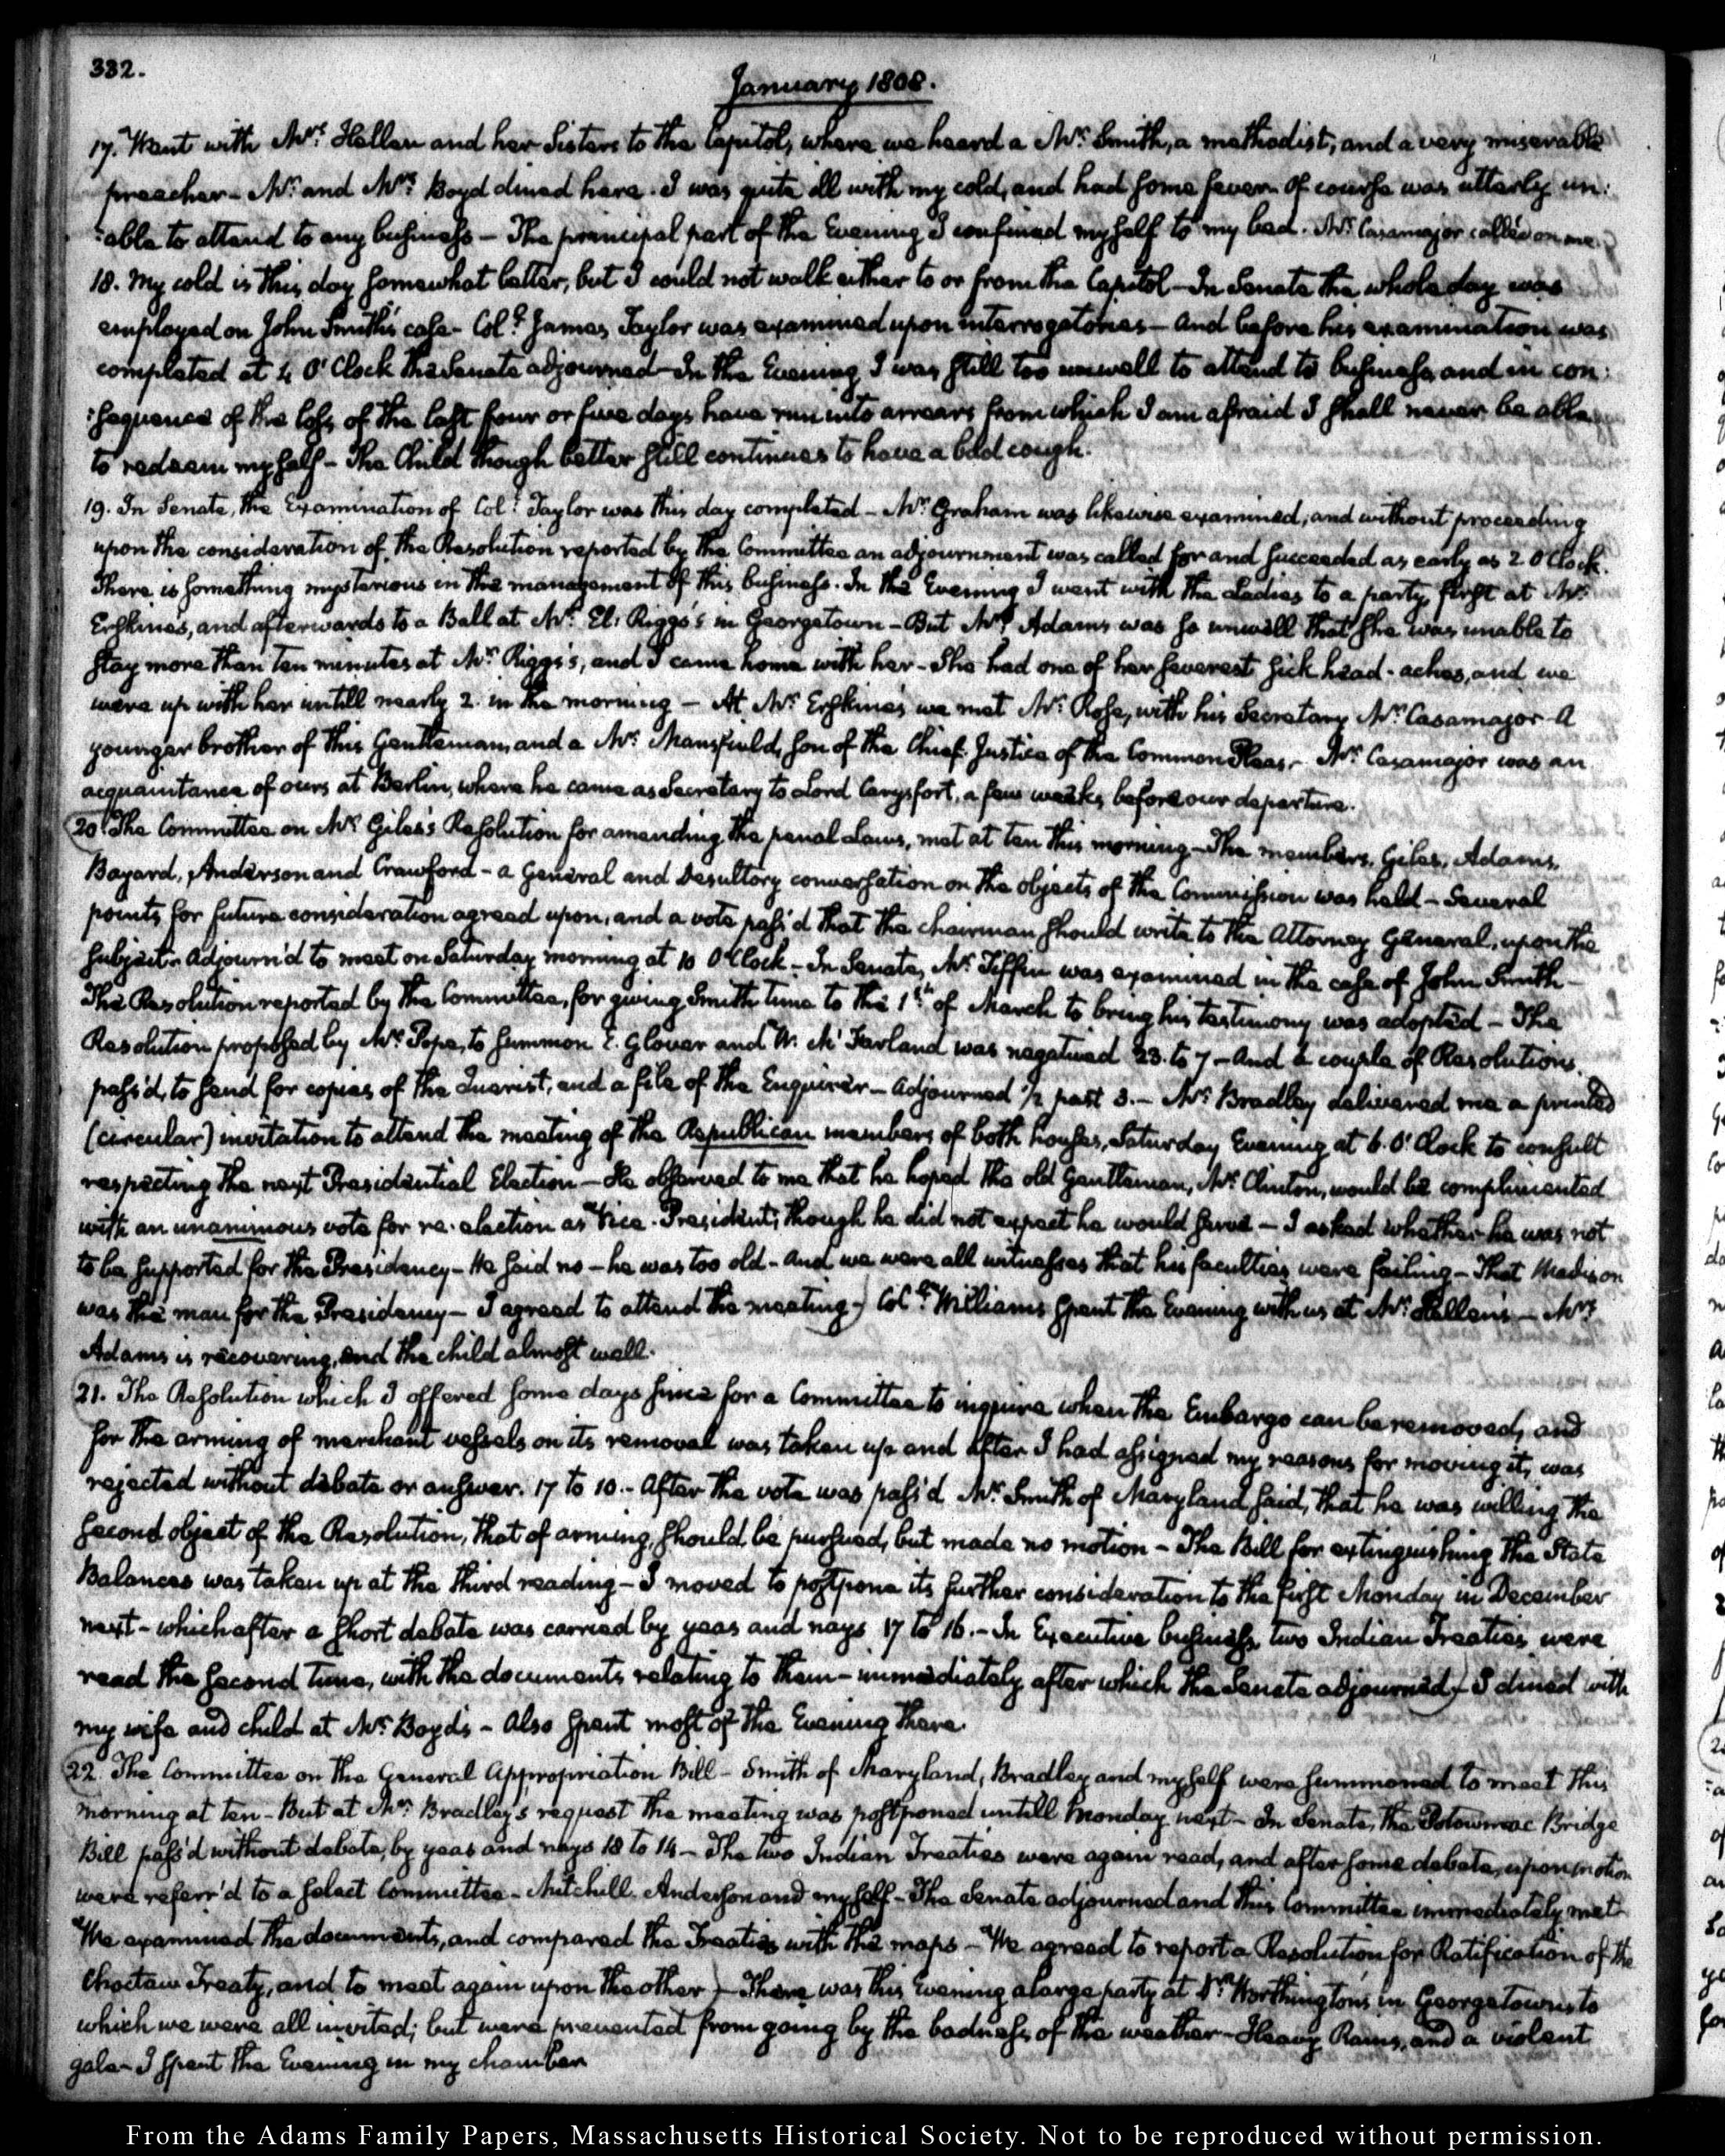 332.
January 1808.
17. Went with Mrs. Hellen and her Sisters to the Capitol, where we heard a Mr. Smith, a methodist, and a very miserable
preacher – Mr. and Mrs. Boyd dined here. I was quite ill with my cold, and had some fever. Of course was utterly un:
:able to attend to any business – The principal part of the Evening I confined myself to my bed. Mr. Casamajor called on me.
18. My cold is this day somewhat better, but I could not walk either to or from the Capitol – In Senate the whole day was
employed on John Smith's case – Coll. James Taylor was examined upon interrogatories – And before his examination was
completed at 4 O'Clock the Senate adjourned – In the Evening I was still too unwell to attend to business, and in con:
:sequence of the loss of the last four or five days have run into arrears from which I am afraid I shall never be able
to redeem myself – The Child though better still continues to have a bad cough.
19. In Senate, the Examination of Coll. Taylor was this day completed – Mr. Graham was likewise examined, and without proceeding
upon the consideration of the Resolution reported by the Committee an adjournment was called for and succeeded as early as 2 O'Clock.
There is something mysterious in the management of this business. In the Evening I went with the Ladies to a party, first at Mr.
Erskine's, and afterwards to a Ball at Mr. El: Riggs's in Georgetown – But Mrs. Adams was so unwell that she was unable to
stay more than ten minutes at Mr. Riggs's, and I came home with her – She had one of her severest sick head-aches, and we
were up with her untill nearly 2. in the morning – At Mr. Erskine's we met Mr. Rose, with his Secretary Mr. Casamajor – A
younger brother of this Gentleman, and a Mr. Mansfield, son of the Chief-Justice of the Common Pleas – Mr. Casamajor was an
acquaintance of ours at Berlin, where he came as Secretary to Lord Carysfort, a few weeks before our departure.
20. The Committee on Mr. Giles's Resolution for amending the penal Laws, met at ten this morning – The members, Giles, Adams,
Bayard, Anderson and Crawford – a General and Desultory conversation on the objects of the Commission was held – Several
points for future consideration agreed upon, and a vote pass'd that the chairman should write to the Attorney General, upon the
subject – Adjourn'd to meet on Saturday morning at 10 O'Clock – In Senate, Mr. Tiffin was examined in the case of John Smith –
The Resolution reported by the Committee, for giving Smith time to the 1st. of March to bring his testimony was adopted – The
Resolution proposed by Mr. Pope, to summon E. Glover and W. McFarland was negatived 23. to 7 – And a couple of Resolutions
pass'd, to send for copies of the Querist, and a file of the Enquirer – Adjourned 1/2 past 3. – Mr. Bradley delivered me a printed
(circular) invitation to attend the meeting of the Republican members of both houses, Saturday Evening at 6. O'Clock to consult
respecting the next Presidential Election – He observed to me that he hoped the old Gentleman, Mr. Clinton, would be complimented
with an unanimous vote for re-election as Vice-President; though he did not expect he would serve – I asked whether he was not
to be supported for the Presidency – He said no – he was too old – And we were all witnesses that his faculties were failing – That Madison
was the man for the Presidency – I agreed to attend the meeting) Coll. Williams spent the Evening with us at Mr. Hellen's – Mrs.
Adams is recovering, and the child almost well.
21. The Resolution which I offered some days since for a Committee to inquire when the Embargo can be removed, and
for the arming of merchant vessels on its removal was taken up and after I had assigned my reasons for moving it, was
rejected without debate or answer. 17 to 10. – After the vote was pass'd Mr. Smith of Maryland said, that he was willing the
second object of the Resolution, that of arming, should be pursued, but made no motion – The Bill for extinguishing the State
Balances was taken up at the third reading – I moved to postpone its further consideration to the first Monday in December
next – which after a short debate was carried by yeas and nays 17 to 16. – In Executive business, two Indian Treaties were
read the second time, with the documents relating to them – immediately after which the Senate adjourned) – I dined with
my wife and child at Mr. Boyd's – Also spent most of the Evening there.
22. The Committee on the General Appropriation Bill – Smith of Maryland, Bradley and myself were summoned to meet this
morning at ten – But at Mr. Bradley's request the meeting was postponed untill Monday next – In Senate, the Potowmac Bridge
Bill pass'd without debate, by yeas and nays 18 to 14 – The two Indian Treaties were again read, and after some debate, upon motion
were referr'd to a select Committee – Mitchill, Anderson and myself – The Senate adjourned and this Committee immediately met
We examined the documents, and compared the Treaties with the maps – We agreed to report a Resolution for Ratification of the
Choctaw Treaty, and to meet again upon the other) – There was this Evening a large party at Dr. Worthington's in Georgetown to
which we were all invited; but were prevented from going by the badness of the weather – Heavy Rains, and a violent
gale – I spent the Evening in my chamber
From the Adams Family Papers, Massachusetts Historical Society. Not to be reproduced without permission.